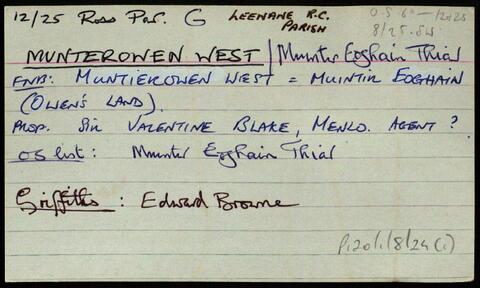 12/25 Ross Par. G LEENANE R.C. PARISH O.S 6" — 12+25
8/25.SW
MUNTEROWEN WEST / Muintir Eoghain Thiar
FNB: MUNTIEROWEN WEST = MUINTIR EOGHAIN
(OWEN'S LAND).
PROP. SIR VALENTINE BLAKE, MENLO. AGENT ?
OS list: Muintir Eoghain Thiar
Griffiths: Edward Browne
P120/1/8/24(i)